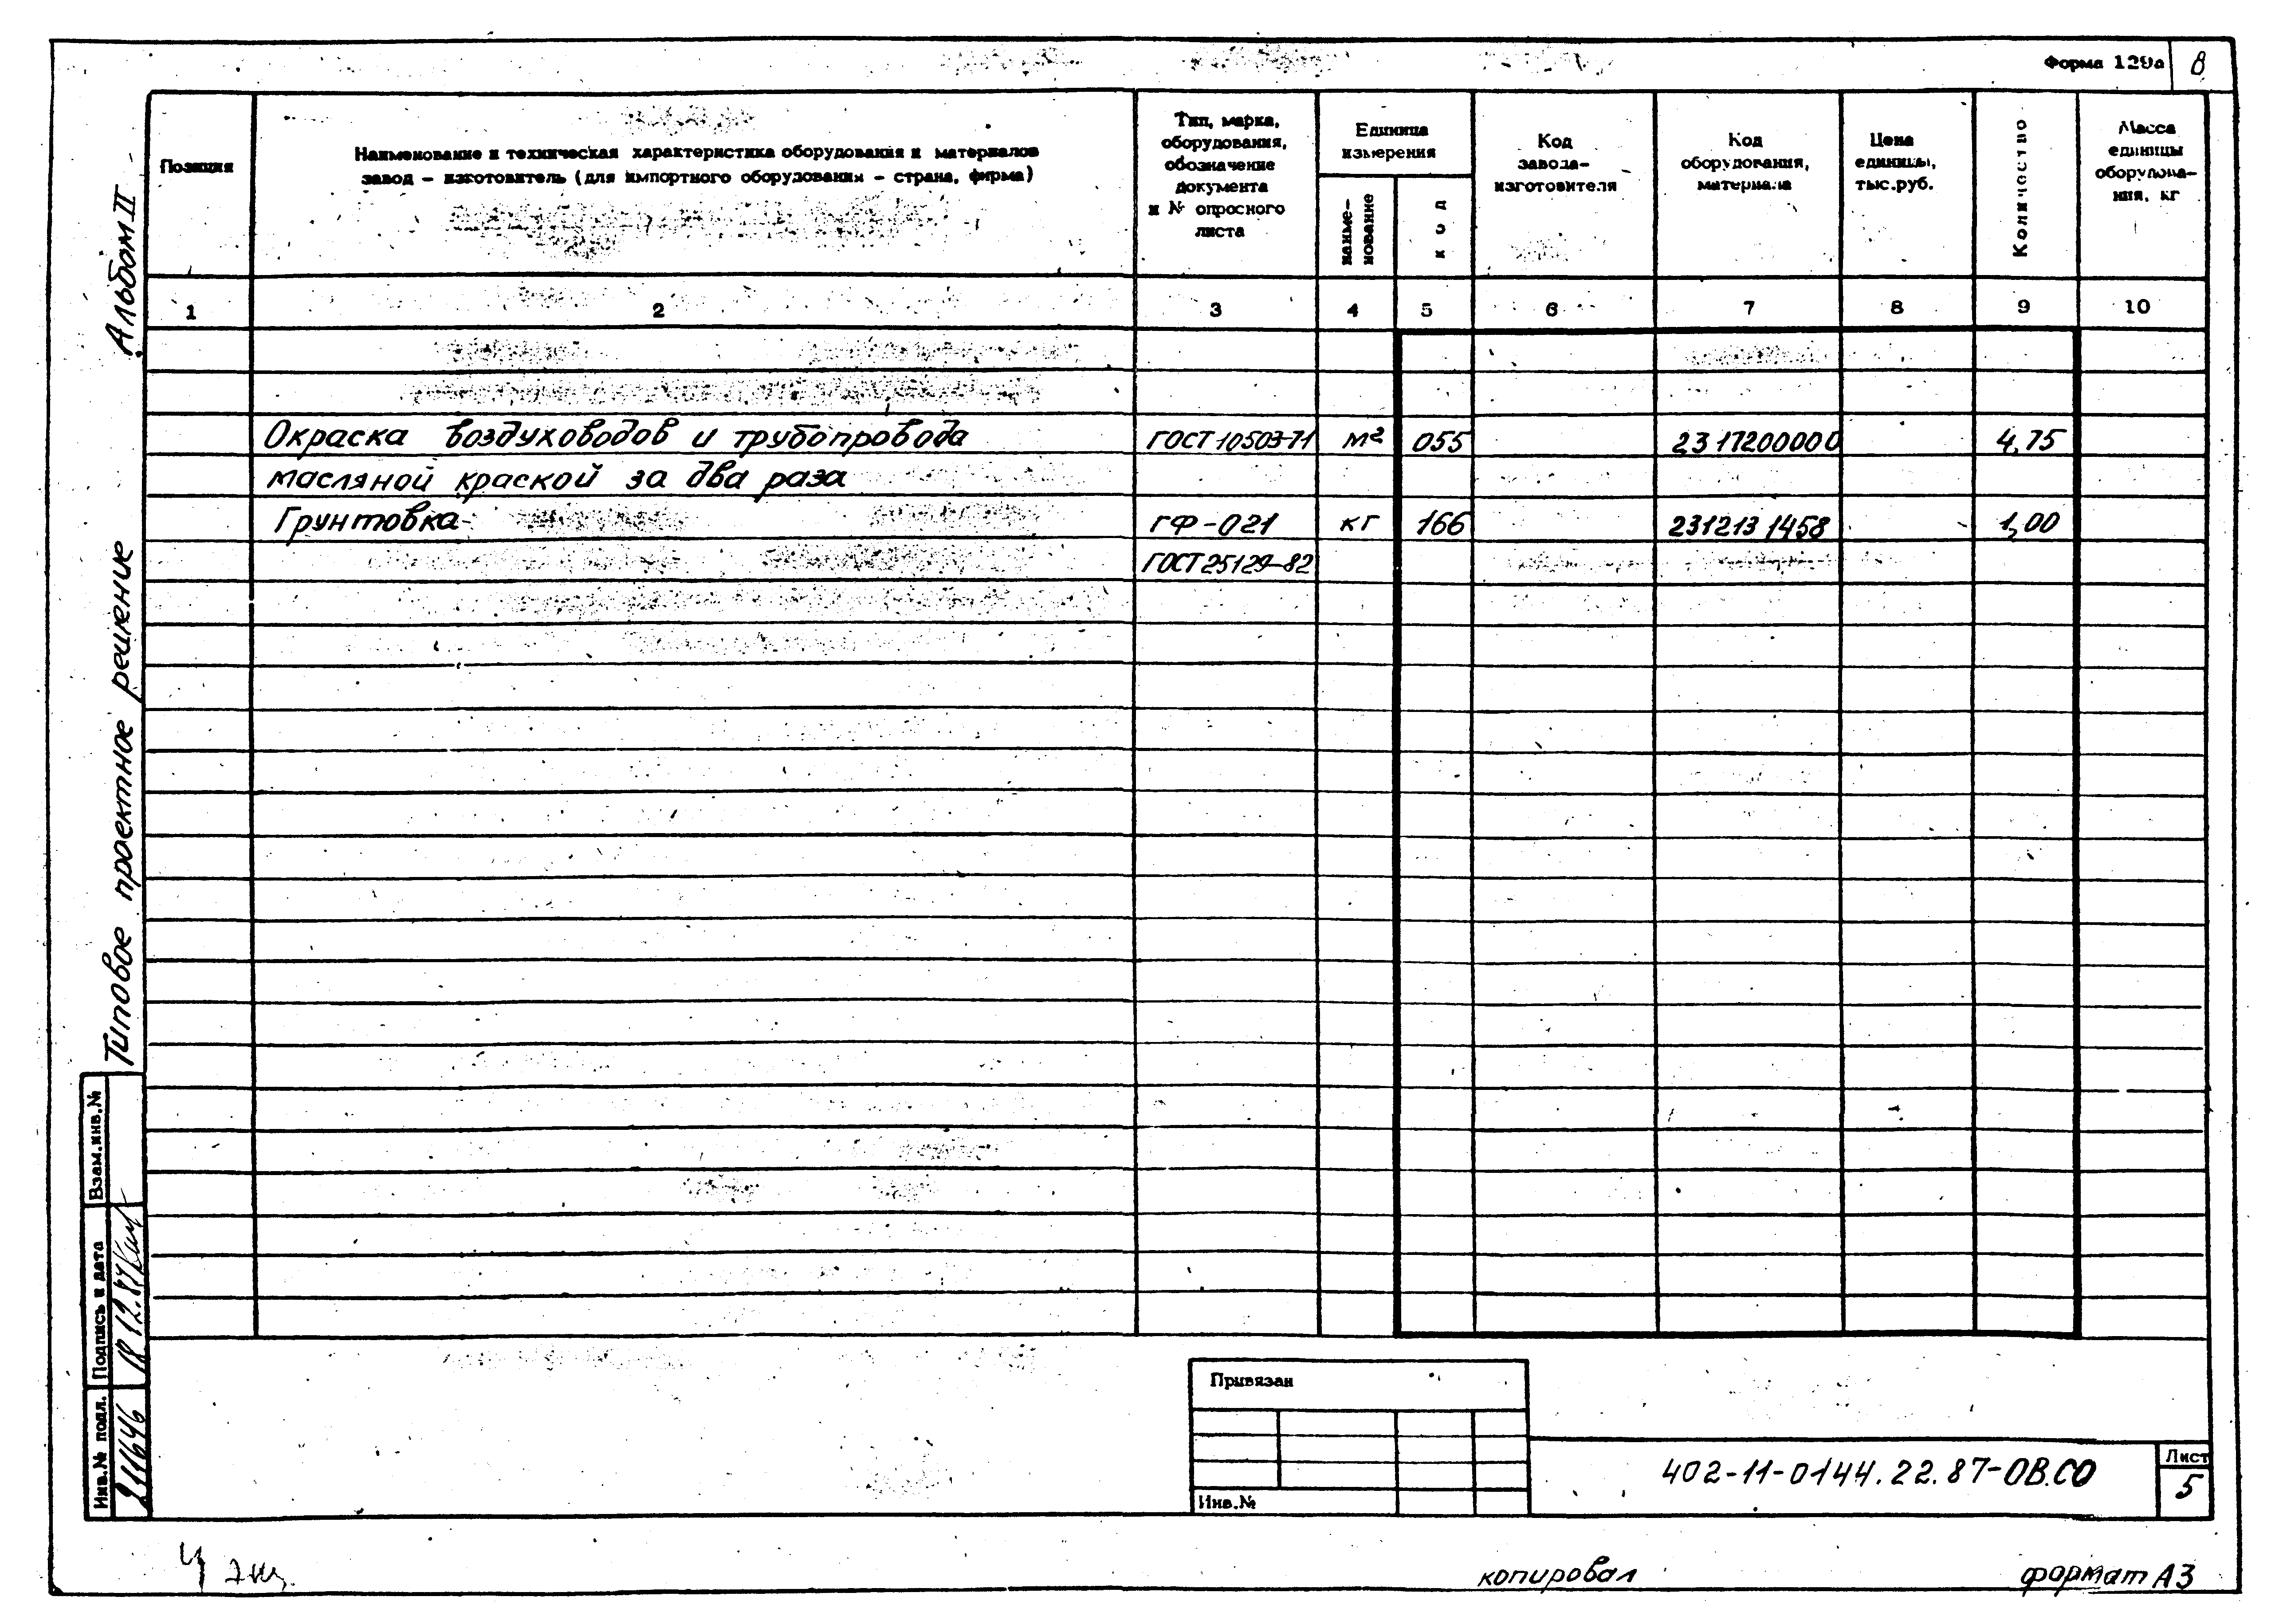 Форма 129а 8
Альбом II
Типовое проектное решение
Позиция
Наименование и техническая характеристика оборудования и материалов
завод – изготовитель (для импортного оборудования – страна, фирма)
Тип, марка,
оборудования,
обозначение
документа
и № опросного
листа
Единица
измерения
наиме–
нование
код
Код
завода–
изготовителя
Код
оборудования,
материала
Цена
единицы,
тыс.руб.
Количество
Масса
единицы
оборудова–
ния, кг
1 2 3 4 5 6 7 8 9 10
Окраска воздуховодов и трубопровода ГОСТ 10503-71 м² 055 2317200000 4,75
масляной краской за два раза
Грунтовка ГФ-021 кг 166 2312131458 1,00
ГОСТ 25129-82
Взам.инв.№
Подпись и дата
Инв.№ подл.
211646
Привязан
Инв.№
402-11-0144.22.87-ОВ.СО
Лист
5
копировал формат А3